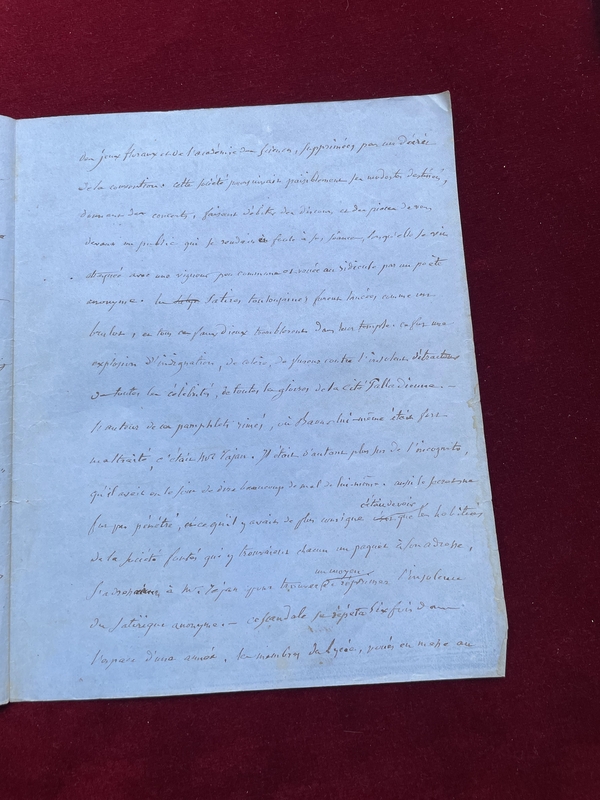 aux jeux floraux et de l'académie des sciences, supprimées par un décret
de la convention. cette société poursuivait paisiblement ses modestes destinées,
donnant des concerts, faisant débiter des discours et des pièces de vers
devant un public qui se rendait en foule à ses séances, lorsqu'elle se vit
attaquée avec une vigueur peu commune et vouée au ridicule par un poète
anonyme. les satires toulousaines furent lancées comme un
brulot, et tous ces faux dieux tremblèrent dans leur temple. ce fut une
explosion d'indignation, de colère, de fureur contre l'insolent détracteur
de toutes les célébrités, de toutes les gloires de la Cité Palladienne. —
L'auteur de ces pamphlets rimés, où Baour lui-même était fort
maltraité, c'était Mr Tajan. Il était d'autant plus sûr de l'incognito,
qu'il avait eu le soin de dire beaucoup de mal de lui-même. aussi le secret ne
fut pas pénétré, et ce qu'il y avait de plus comique
était de voir
que les habitués
de la société fautés qui y trouvaient chacun un paquet à son adresse,
s'adresser à Mr Tajan pour trouver
un moyen
de réprimer l'insolence
du satirique anonyme. — ce scandale se répéta six fois dans
l'espace d'une année. les membres du Lycée, poussés en niche au